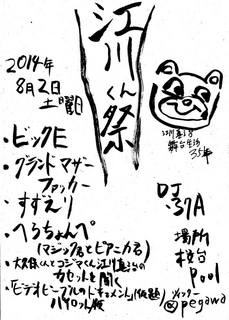 江川くん祭
2014年
8月2日
土曜日
江川真治
舞台生活
35年
・ビックE
・グランドマザー
ファッカー
・すずえり
・へろちょんぺ
(マジック君とピアニカ君)
・大久保くんとコジマくん江川真治の
カセットを聞く
・「ビデオピープルのドキュメント」(仮題)
パイロット版
DJ
37A
場所
桜台
pool
ツイッター
@pegawa